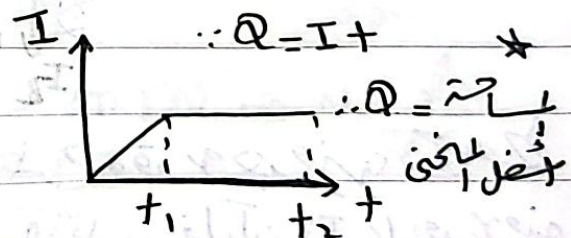 I ∵ Q = It *
∴ Q = مساحة
أسفل المنحنى
t₁ t₂ t